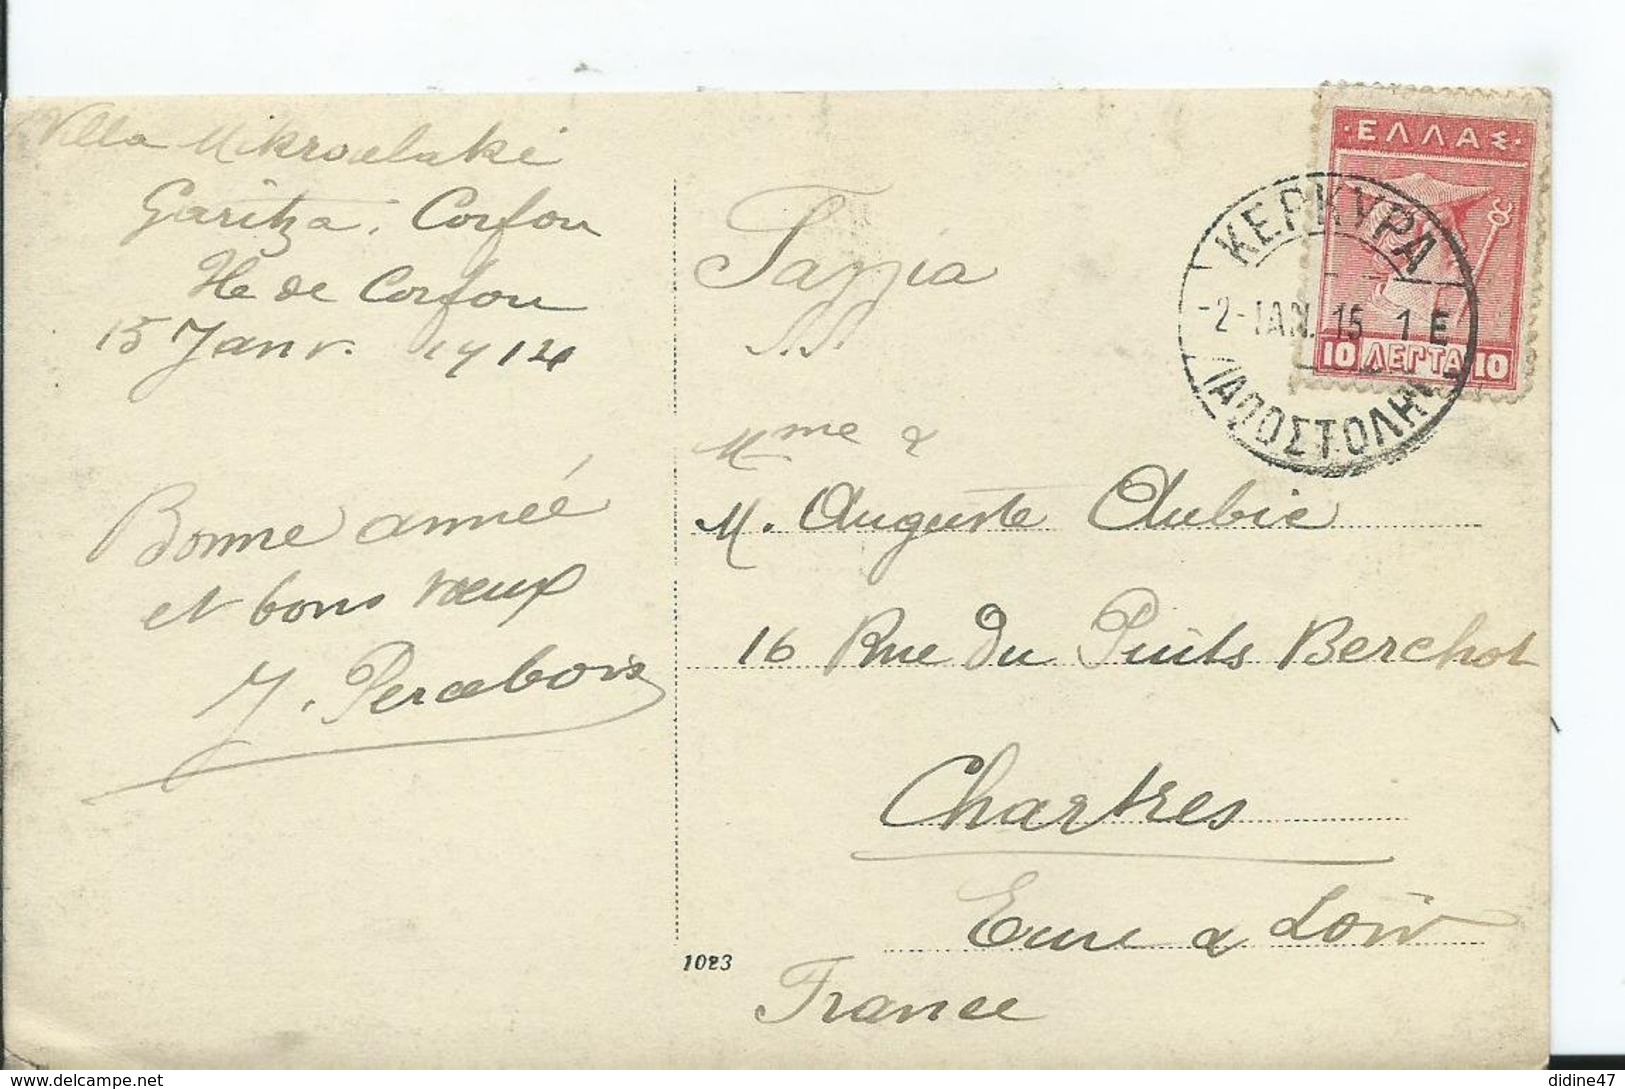 Villa Mikroulaki
Garitza. Corfou
Ile de Corfou
15 Janv. 1914
Bonne année
et bons vœux
J. Percebois
ΕΛΛΑΣ
10 ΛΕΠΤΑ 10
ΚΕΡΚΥΡΑ
-2-ΙΑΝ. 15 1 Ε
ΑΠΟΣΤΟΛΗ
Mme &
M. Auguste Aubie
16 Rue du Puits Berchot
Chartres
Eure & Loir
France
1023
didine47